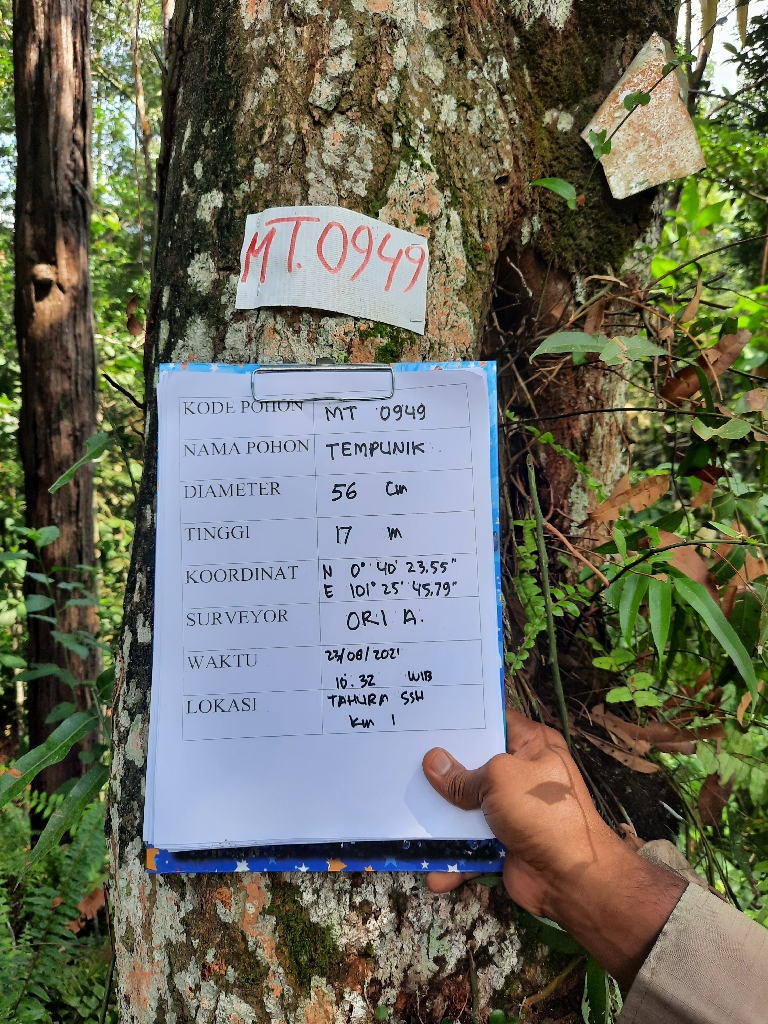 MT. 0949
KODE POHON MT 0949
NAMA POHON TEMPUNIK
DIAMETER 56 Cm
TINGGI 17 m
KOORDINAT N 0° 40' 23.55"
E 101° 25' 45,79"
SURVEYOR ORI A.
WAKTU 23/08/2021
10.32 WIB
LOKASI TAHURA SSH
Km 1